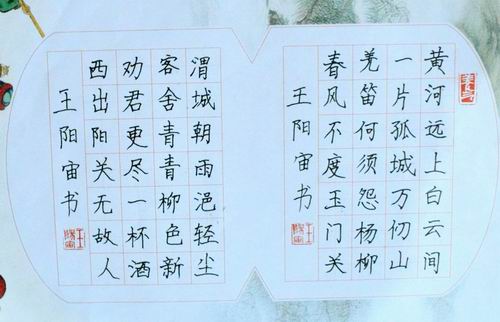 黄河远上白云间
一片孤城万仞山
羌笛何须怨杨柳
春风不度玉门关
王阳宙书
渭城朝雨浥轻尘
客舍青青柳色新
劝君更尽一杯酒
西出阳关无故人
王阳宙书